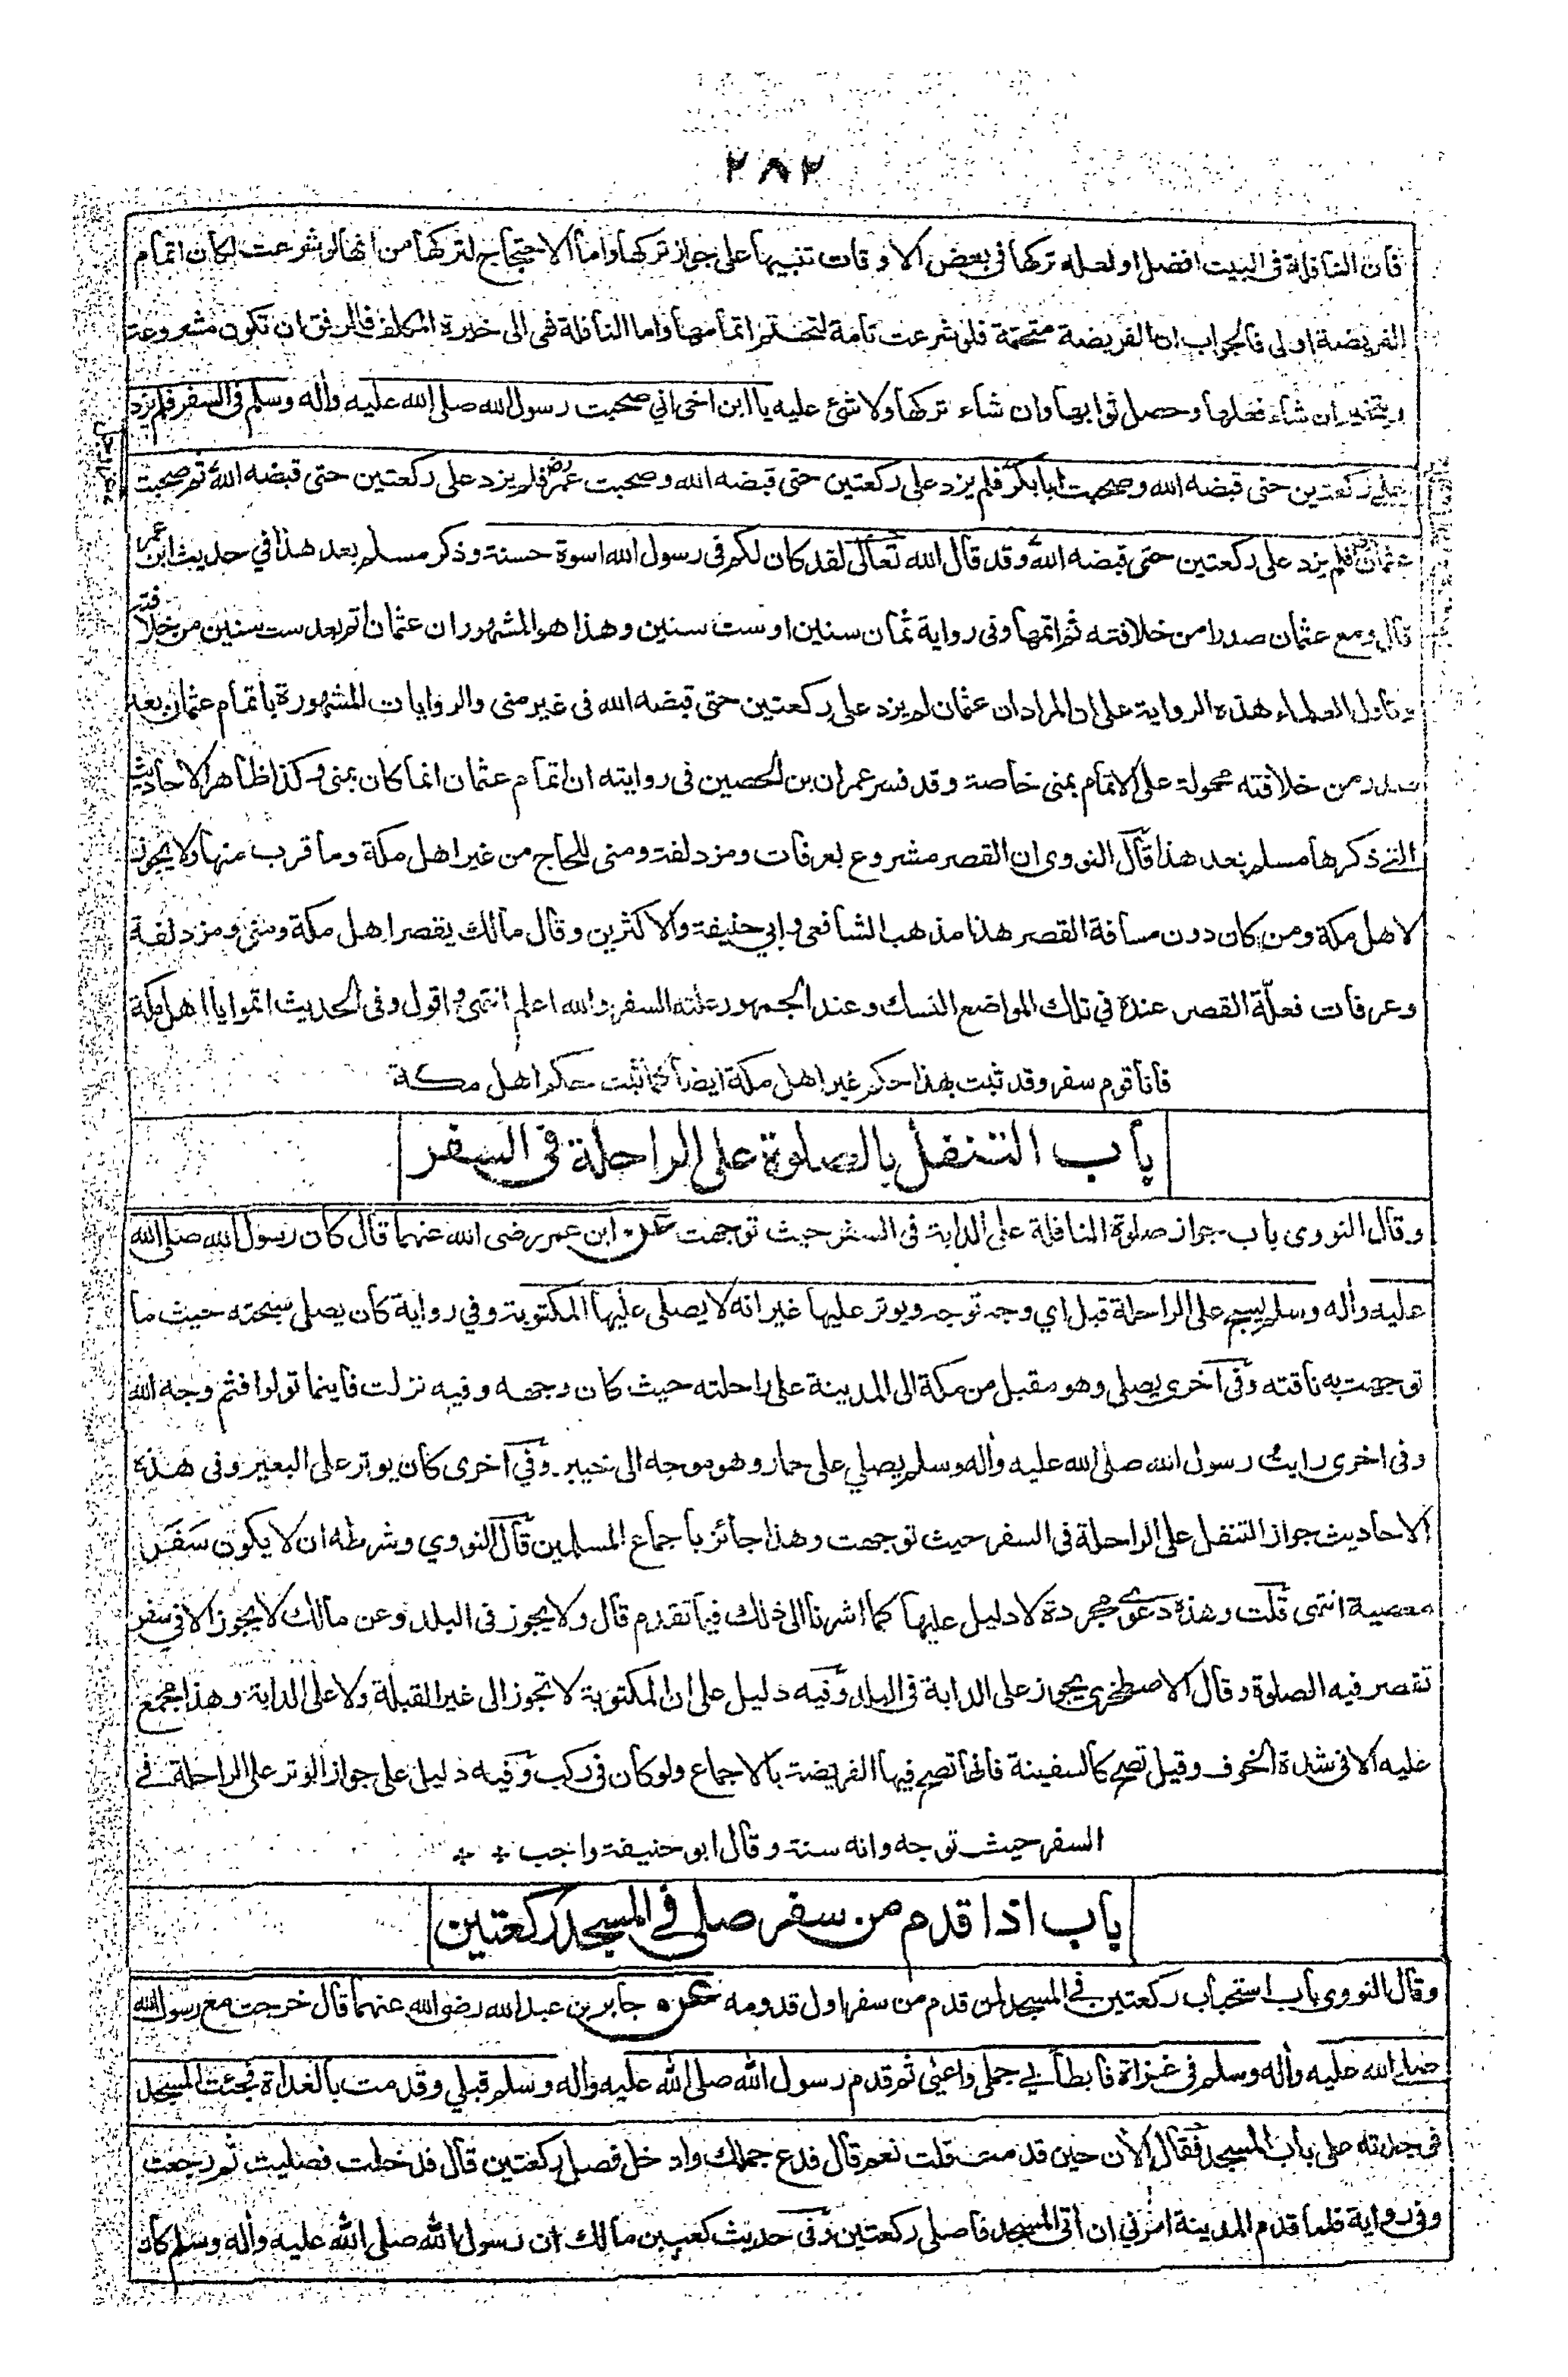 ٢٨٢
فان النافلة فى البيت افضل او لعله تركها فى بعض الاوقات تنبيها على جواز تركها واما الاحتجاج لتركها من انها لو شرعت لكان اتمام
الفريضة اولى فالجواب ان الفريضة متحتمة فلو شرعت تامة لتحتم اتمامها واما النافلة فهى الى خيرة المكلف فالرفق ان تكون مشروعة
ويتخير ان شاء فعلها وحصل ثوابها وان شاء تركها ولا شئ عليه يا ابن اخى انى صحبت رسول الله صلى الله عليه وأله وسلم فى السفر فلم يزد
على ركعتين حتى قبضه الله وصحبت ابا بكر فلم يزد على ركعتين حتى قبضه الله وصحبت عمر رض فلم يزد على ركعتين حتى قبضه الله ثم صحبت
عثمان فلم يزد على ركعتين حتى قبضه الله وقد قال الله تعالى لقد كان لكم فى رسول الله اسوة حسنة وذكر مسلم بعد هذا في حديث ابن عمر
قال ومع عثمان صدرا من خلافته ثم اتمها وفى رواية ثمان سنين او ست سنين وهذا هو المشهور ان عثمان اتم بعد ست سنين من خلافته
وتاول العلماء هذه الرواية على ان المراد ان عثمان لم يزد على ركعتين حتى قبضه الله فى غير منى والروايات المشهورة باتمام عثمان بعد
صدر من خلافته محمولة على الاتمام بمنى خاصة وقد فسر عمران بن الحصين فى روايته ان اتمام عثمان انما كان بمنى وكذا ظاهر الاحاديث
التى ذكرها مسلم بعد هذا قال النووى ان القصر مشروع بعرفات ومزدلفة ومنى للحاج من غير اهل مكة وما قرب منها ولا يجوز
لاهل مكة ومن كان دون مسافة القصر هذا مذهب الشافعى وابي حنيفة والاكثرين وقال مالك يقصر اهل مكة ومنى ومزدلفة
وعرفات فعلّة القصر عنده في تلك المواضع النسك وعند الجمهور علته السفر والله اعلم انتهى واقول وفى الحديث اتموا يا اهل مكة
فانا قوم سفر وقد ثبت بهذا حكم غير اهل مكة ايضا كما ثبت حكم اهل مكة
باب التنفل بالصلوة على الراحلة فى السفر
وقال النووى باب جواز صلوة النافلة على الدابة فى السفر حيث توجهت عن ابن عمر رضى الله عنهما قال كان رسول الله صلى الله
عليه وأله وسلم يسبح على الراحلة قبل اي وجه توجه ويوتر عليها غير انه لا يصلى عليها المكتوبة وفي رواية كان يصلى سبحته حيث ما
توجهت به ناقته وفى أخرى يصلى وهو مقبل من مكة الى المدينة على راحلته حيث كان وجهه وفيه نزلت فاينما تولوا فثم وجه الله
وفى اخرى رايت رسول الله صلى الله عليه وأله وسلم يصلي على حمار وهو موجه الى خيبر وفي أخرى كان يوتر على البعير وفى هذه
الاحاديث جواز التنفل على الراحلة فى السفر حيث توجهت وهذا جائز باجماع المسلمين قال النووي وشرطه ان لا يكون سَفَرَ
معصية انتهى قلت وهذه دعوى مجردة لا دليل عليها كما اشرنا الى ذلك فيما تقدم قال ولا يجوز فى البلد وعن مالك لا يجوز الا في سفر
تقصر فيه الصلوة وقال الاصطخرى يجوز على الدابة فى البلد وفيه دليل على ان المكتوبة لا تجوز الى غير القبلة ولا على الدابة وهذا مجمع
عليه الا فى شدة الخوف وقيل تصح كالسفينة فانها تصح فيها الفريضة بالاجماع ولو كان فى ركب وفيه دليل على جواز الوتر على الراحلة فى
السفر حيث توجه وانه سنة وقال ابو حنيفة واجب
باب اذا قدم من سفر صلى فى المسجد ركعتين
وقال النووى باب استحباب ركعتين فى المسجد لمن قدم من سفر اول قدومه عن جابر بن عبد الله رضى الله عنهما قال خرجت مع رسول الله
صلى الله عليه وأله وسلم فى غزاة فابطأ بي جملى واعيى ثم قدم رسول الله صلى الله عليه وأله وسلم قبلي وقدمت بالغداة فجئت المسجد
فوجدته على باب المسجد فقال الأن حين قدمت قلت نعم قال فدع جملك وادخل فصل ركعتين قال فدخلت فصليت ثم رجعت
وفى رواية فلما قدم المدينة امرني ان أتى المسجد فاصلى ركعتين وفى حديث كعب بن مالك ان رسول الله صلى الله عليه وأله وسلم كان